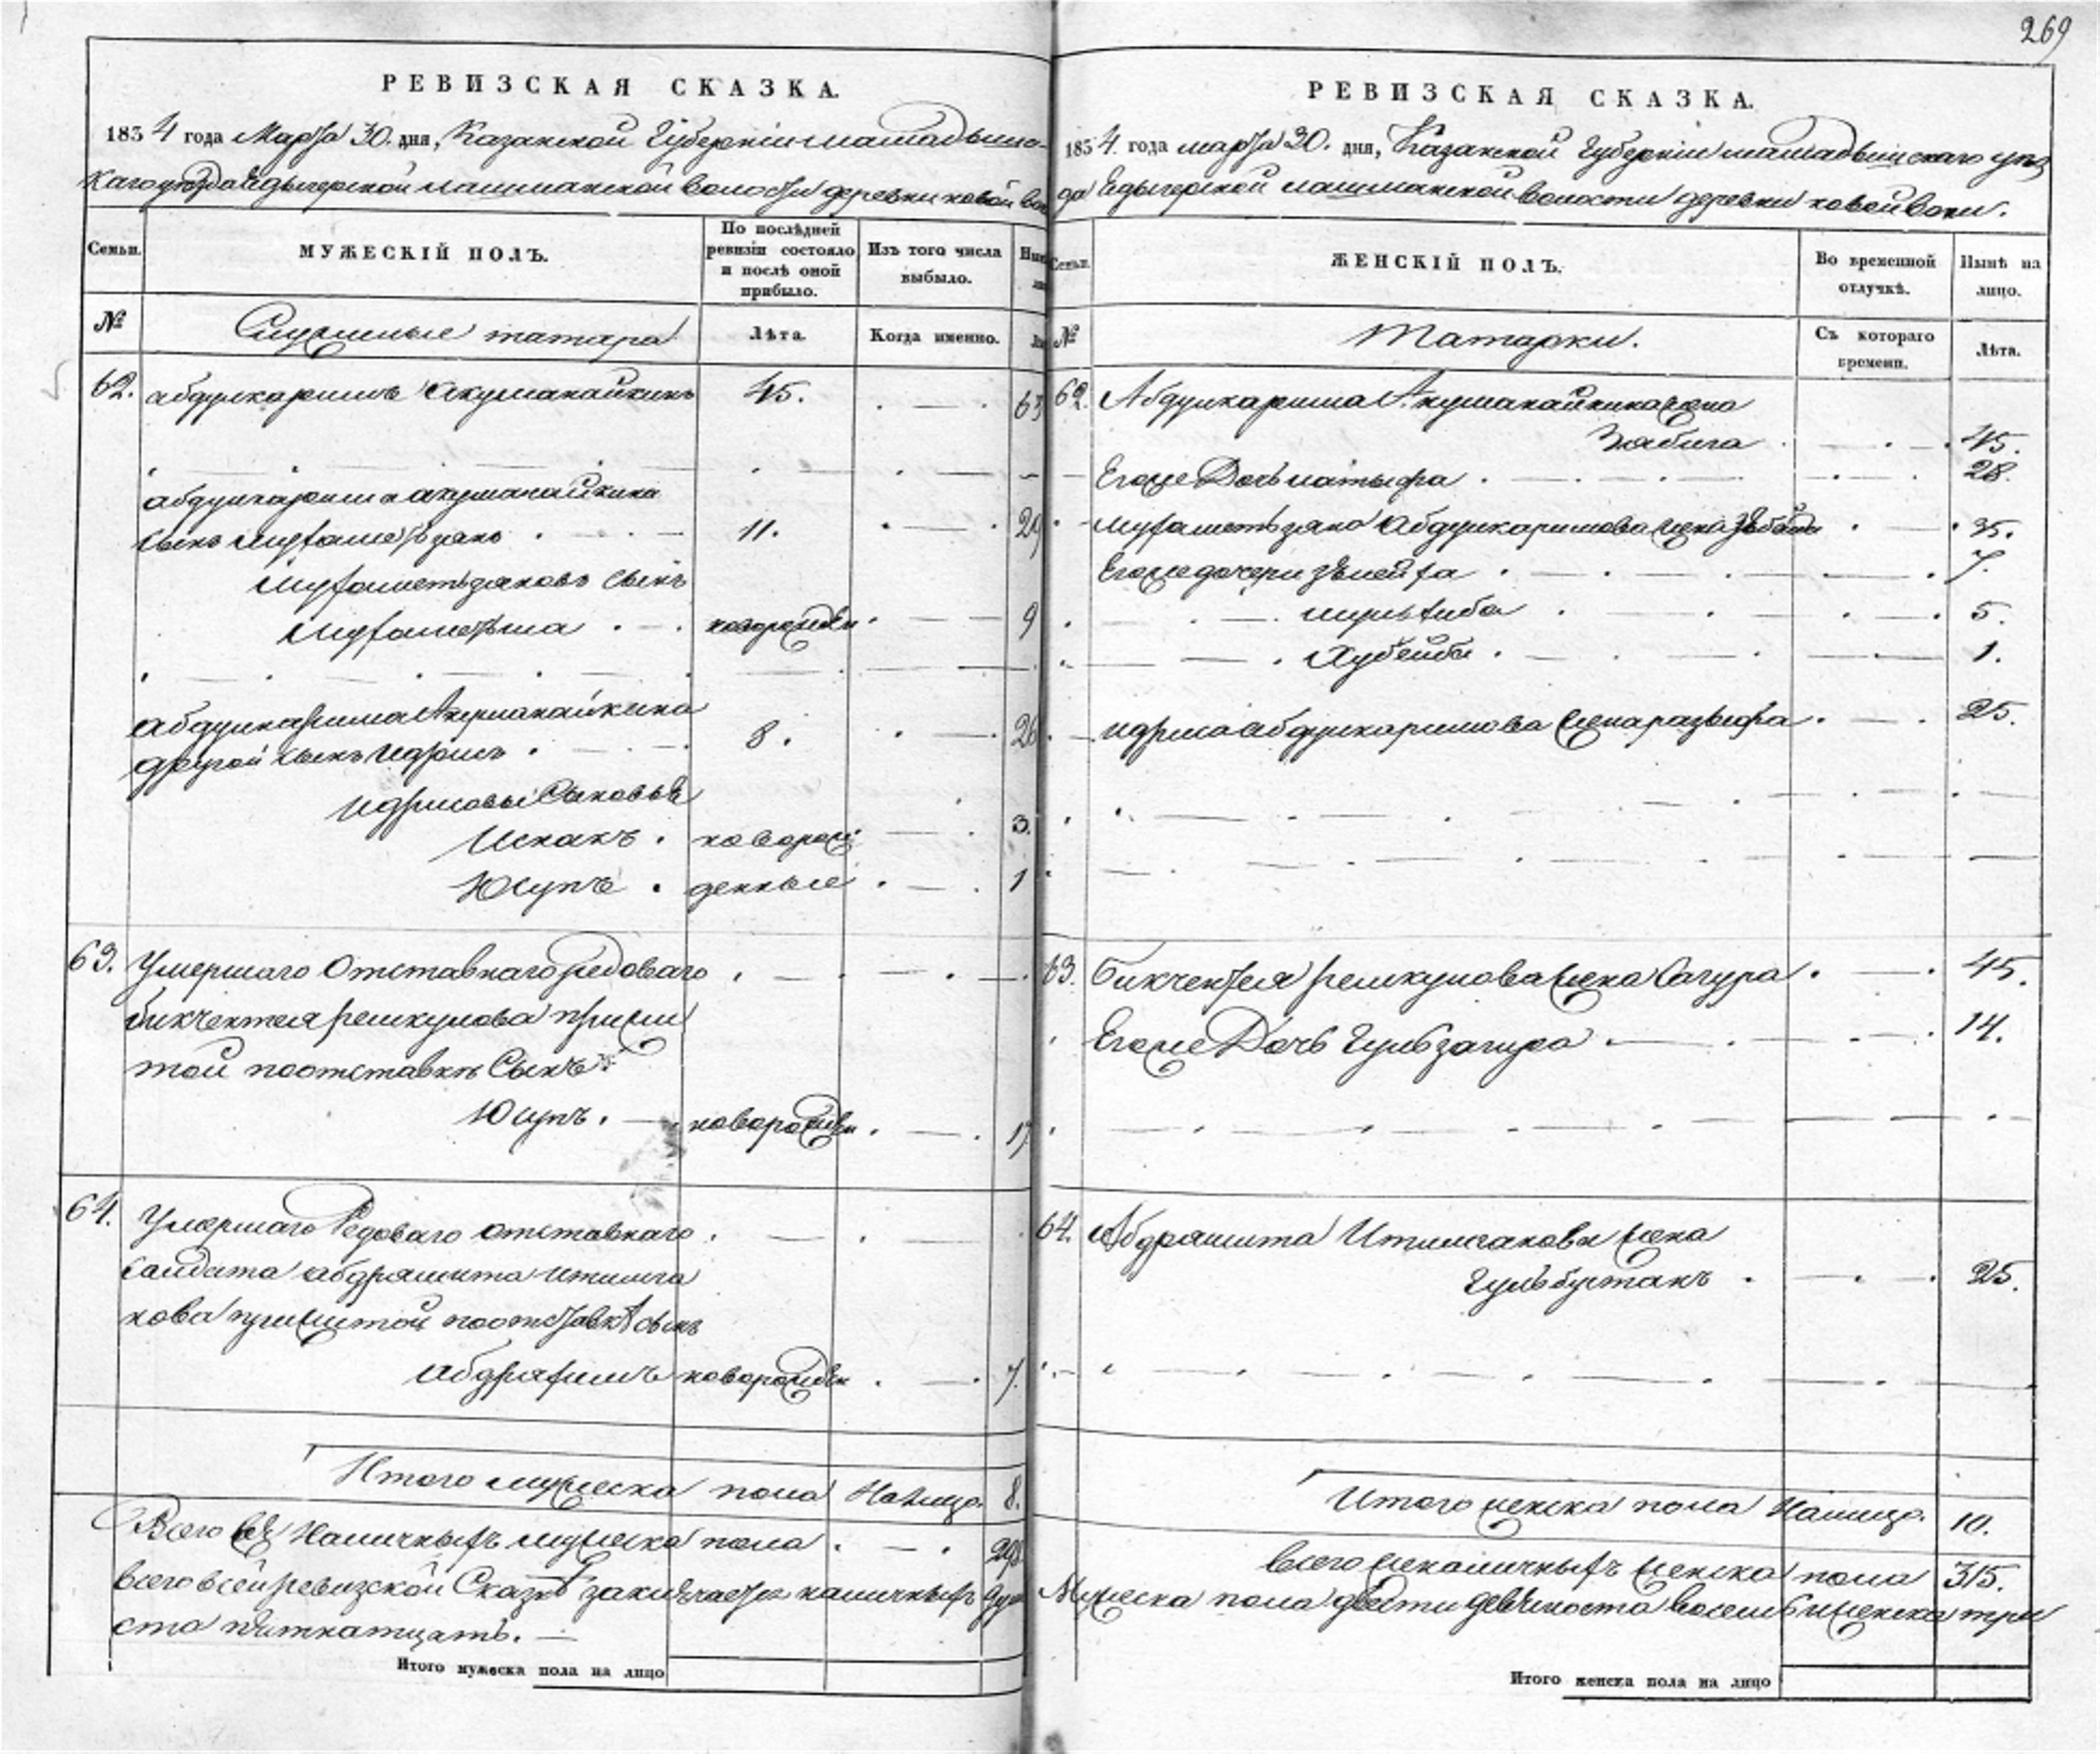 269
РЕВИЗСКАЯ СКАЗКА.
1834 года Марта 30. дня, Казанской Губернiи мамадышс-
каго уѣзда Едыгерской лашманской волости деревни новой
Семьи. МУЖЕСКIЙ ПОЛЪ. По послѣдней ревизiи состояло и послѣ оной прибыло. Изъ того числа выбыло.
№ Служилые татара Лѣта. Когда именно.
62. абдулкаримъ Акуманайкинъ 45. 63
абдулкарима акуманайкина
сынъ мухаметзянъ 11. 29
Мухаметзяновъ сынъ
Мухаметша новорожден 9
абдулкарима Акуманайкина
другой сынъ идрисъ 8. 26
идрисовы Сыновья
Исхакъ новорож 3.
Юсупъ денные 1
63. Умершаго Отставнаго редоваго
бикчентея ремкулова прижи
той поотставкѣ Сынъ
Юсупъ. новорожден 17
64. Умершаго Редоваго отставнаго
солдата абдряшита
кова прижитой поотставкѣ сынъ
абдряхимъ новорожден 7.
Итого мужеска пола Налицо. 8.
Всего наличныхъ мужеска пола 298
Всего всей ревизской Сказкѣ заключается наличныхъ душ
ста пятнатцать.
Итого мужеска пола на лицо
РЕВИЗСКАЯ СКАЗКА.
1834. года марта 30. дня, Казанской Губернiи мамадышскаго уѣз
да Едыгерской лашманской волости деревни новой
Семьи. ЖЕНСКIЙ ПОЛЪ. Во временной отлучкѣ. Нынѣ на лицо.
№ Татарки. Съ котораго времени. Лѣта.
62. Абдулкарима Акуманайкина жена
Зябига 45.
Егоже Дочь латыфа 28.
мухаметьзяна Абдулкаримова жена 35.
Егоже дочери 7.
5.
Хубейба 1.
идриса абдулкаримова жена 25.
63. бикчентея ремкулова жена Сагура 45.
Егоже Дочь Гульзагира 14.
64. Абдряшита жена
Гульбустанъ 25.
Итого женска пола Налицо. 10.
Всего наличныхъ женска пола 315.
Мужеска пола двести девяносто восемь и женска три
Итого женска пола на лицо